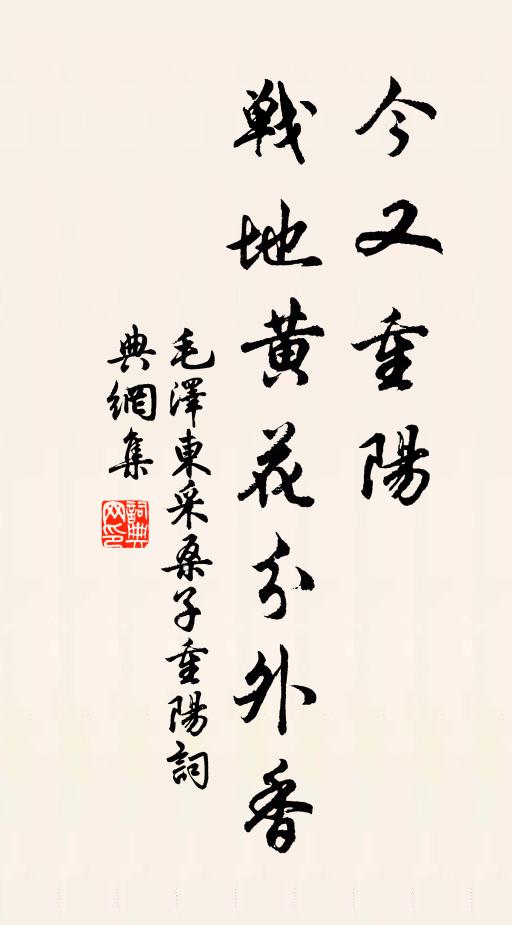 今又重陽
戰地黄花分外香
毛澤東采桑子重陽詞
典網集
詞典网印